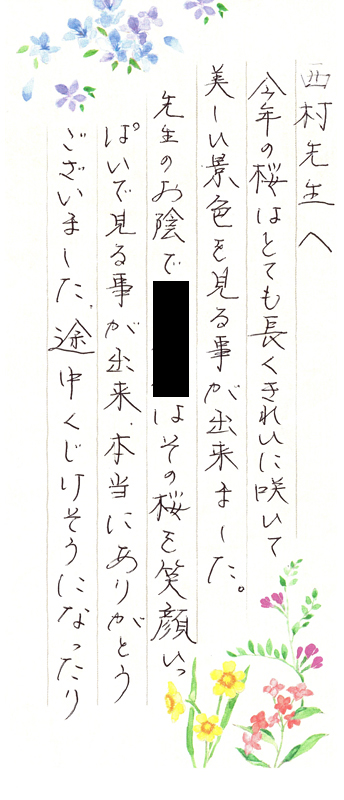 西村先生へ
今年の桜はとても長くきれいに咲いて
美しい景色を見る事が出来ました。
先生のお陰で はその桜を笑顔いっ
ぱいで見る事が出来、本当にありがとう
ございました。途中くじけそうになったり